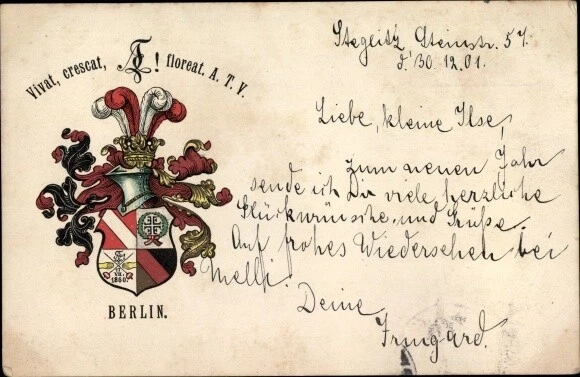 Vivat, crescat, ! floreat. A. T. V.
BERLIN.
1860.
Steglitz Steinstr. 57.
d. 30 12.01.
Liebe, kleine Ilse,
Zum neuen Jahr
sende ich Du viele herzliche
Glückwünsche und Grüße.
Auf frohes Wiedersehen bei
Melli.
Deine
Irmgard.